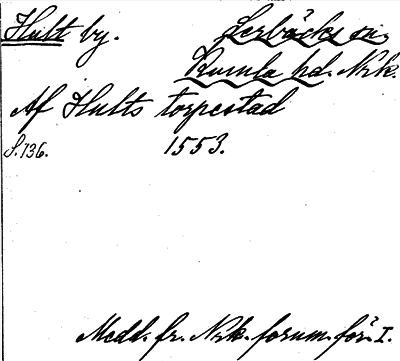 Hult by. Lerbäcks sn,
Kumla hd. Nrk.
Af Hults torpestad
S. 136. 1553.
Medd. fr. Nrk. fornm. för. I.